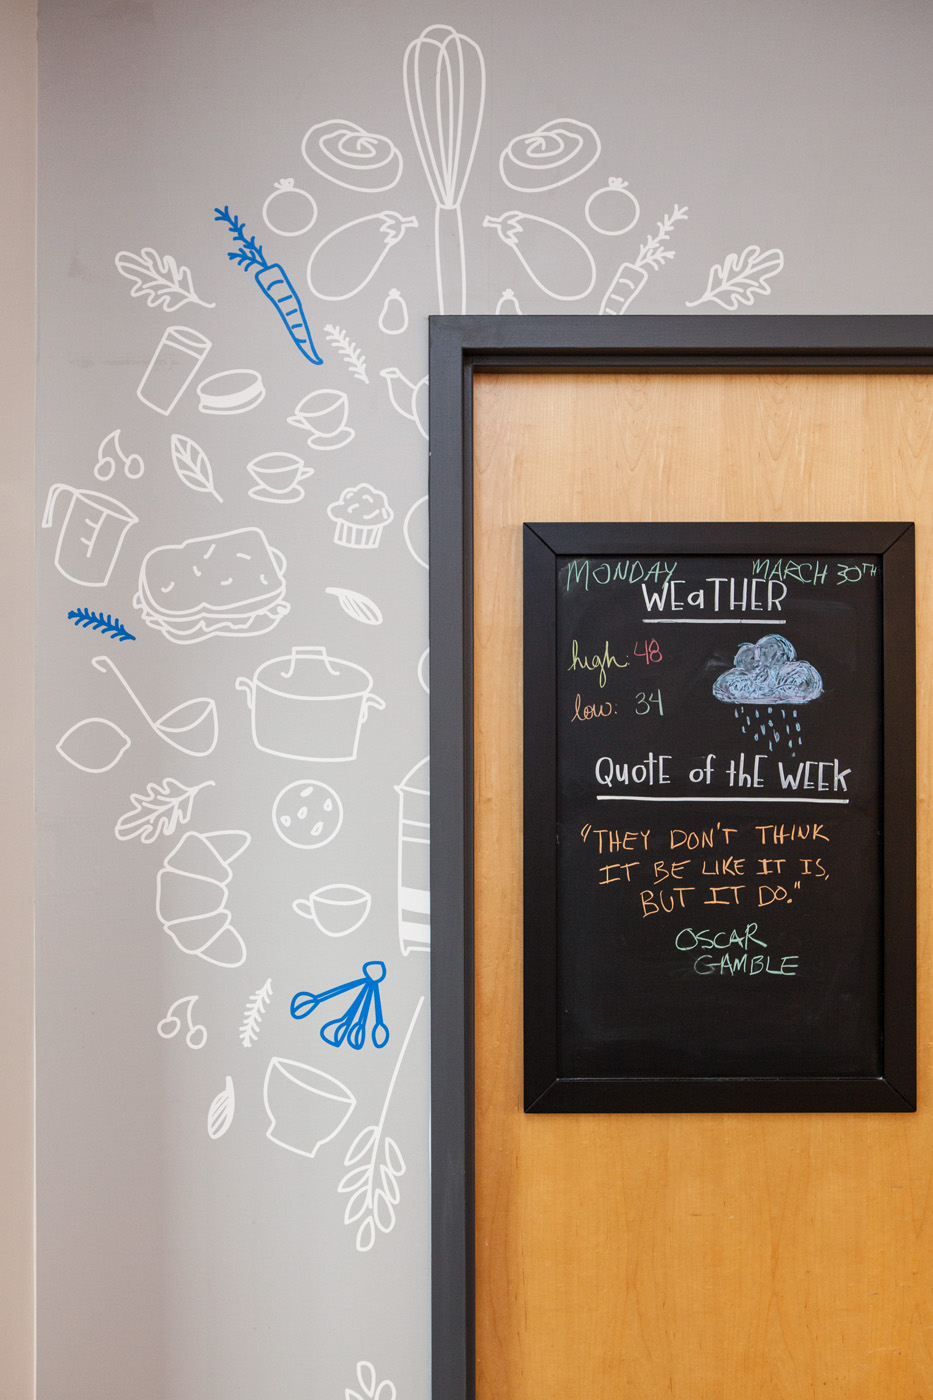 MONDAY MARCH 30TH
WEaTHER
high: 48
low: 34
QuoTE of thE WEEK
"THEY DON'T THINK
IT BE LIKE IT IS,
BUT IT DO."
OSCAR
GAMBLE